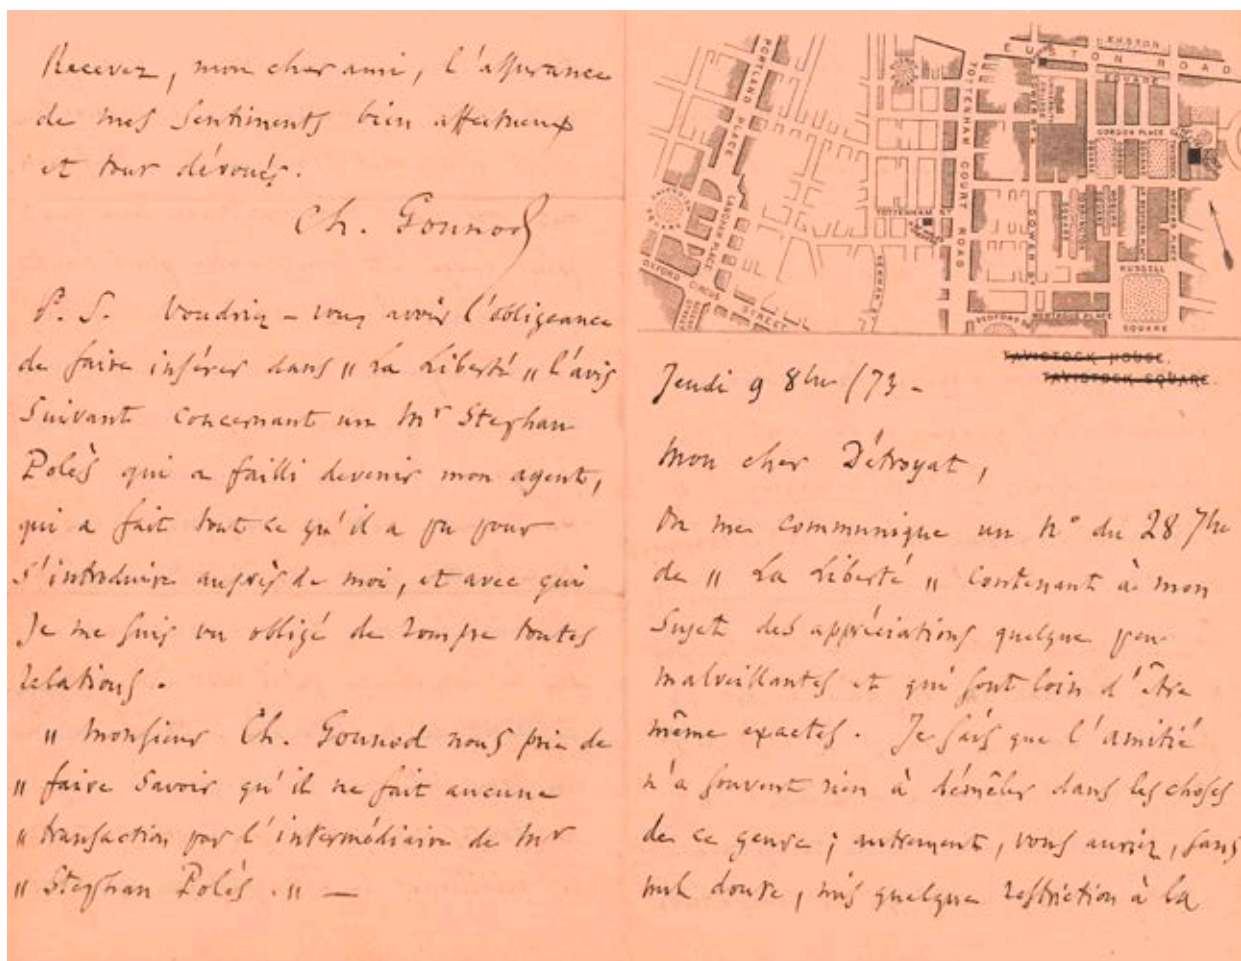 Recevez, mon cher ami, l'assurance
de mes sentiments bien affectueux
et tout dévoués.
Ch. Gounod
P. S. Voudriez-vous avoir l'obligeance
de faire insérer dans " La Liberté " l'avis
suivant concernant un Mr Stephan
Polès qui a failli devenir mon agent,
qui a fait tout ce qu'il a pu pour
s'introduire auprès de moi, et avec qui
je me suis vu obligé de rompre toutes
relations.
" Monsieur Ch. Gounod nous prie de
" faire savoir qu'il ne fait aucune
" transaction par l'intermédiaire de Mr
" Stephan Polès. " —
EUSTON ROAD
EUSTON
SQUARE
PORTLAND PLACE
TOTTENHAM COURT ROAD
GOWER ST
GORDON PLACE
LANGHAM PLACE
TOTTENHAM ST
GOWER ST
OXFORD CIRCUS STREET
NEWMAN ST
BEDFORD
MONTAGUE PLACE
RUSSELL
SQUARE
TAVISTOCK HOUSE.
TAVISTOCK SQUARE.
Jeudi 9 8bre /73 -
Mon cher Détroyat,
On me communique un No du 28 7bre
de " La Liberté " contenant à mon
sujet des appréciations quelque peu
malveillantes et qui sont loin d'être
même exactes. Je sais que l'amitié
n'a souvent rien à démêler dans les choses
de ce genre ; autrement, vous auriez, sans
nul doute, mis quelque restriction à la